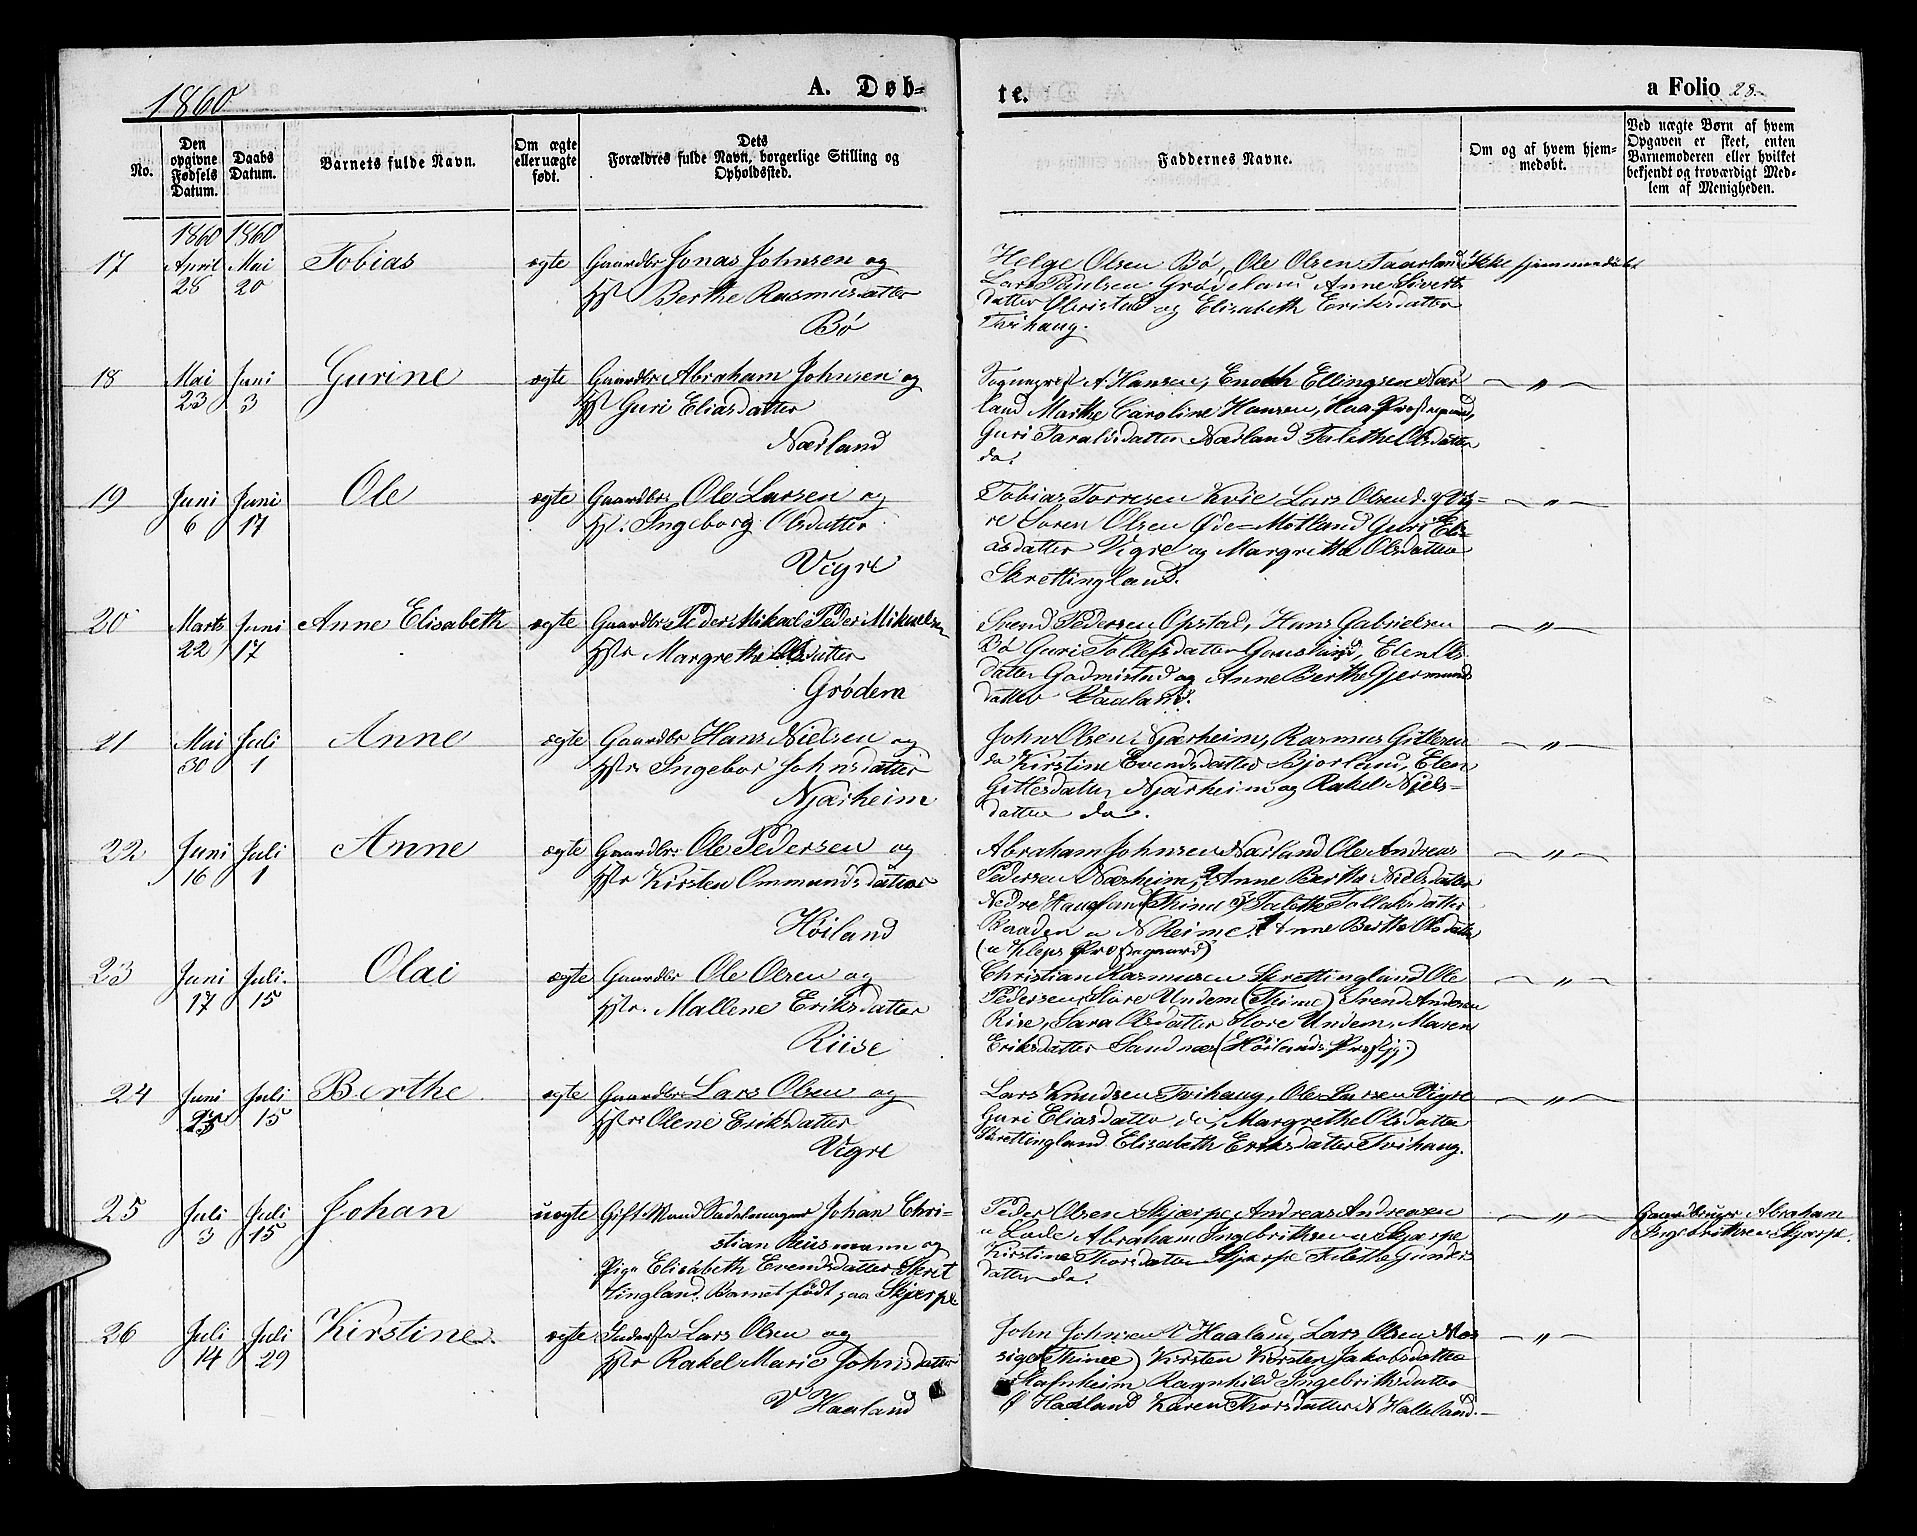 1860
A. Døb-
te.
a Folio 28.
No.
Den opgivne Fødsels Datum.
Daabs Datum.
Barnets fulde Navn.
Om ægte eller uægte født.
Dets Forældres fulde Navn, borgerlige Stilling og Opholdssted.
Faddernes Navne.
Om og af hvem hjemmedøbt.
Ved uægte Børn af hvem Opgaven er skeet, enten Barnemoderen eller hvilket bekjendt og troværdigt Medlem af Menigheden.
1860 1860
17 April 28 Mai 20 Tobias ægte Gaardbr Jonas Johnsen og
Hst Berthe Rasmusdatter
Bø
Helge Olsen Bø, Ole Olsen Taarland
Lars Paulsen Grødeland Anne Siverts
datter Obrestad og Elisabeth Eriksdatter
Tvihaug.
Ikke hjemmedøbt
18 Mai 23 Juni 3 Gurine ægte Gaardbr. Abraham Johnsen og
Hst Guri Eliasdatter
Nærland
Sognepræst A. Hansen, Enoch Ellingsen Nær
land Marthe Caroline Hansen, Haa Præstegaard,
Guri Taraldsdatter Nærland Talethe Olsdatter
do.
— „ —
19 Juni 6 Juni 17 Ole ægte Gaardbr. Ole Larsen og
Hst. Ingeborg Olsdatter
Vigre
Tobias Torresen Kvie Lars Olsen d. y Vig=
re Soren Olsen Øde=Motland Guri Eli=
asdatter Vigre og Margrethe Olsdatter
Skrettingland.
— „ —
20 Marts 22 Juni 17 Anne Elisabeth ægte Gaardbr. Peder Mikael Peder Mikaelsen
Hstr Margrethe Olsdatter
Grødem
Svend Pedersen Opstad, Hans Gabrielsen
Bø Guri Tollefsdatter Gausland, Elen Ols
datter Godmistad og Anne Berthe Gjermunds
datter Vaaland.
— „ —
21 Mai 30 Juli 1 Anne ægte Gaardbr Hans Nielsen og
Hstr. Ingebor Johnsdatter
Njærheim
John Olsen Njærheim, Rasmus Gitlesen
do Kirstine Evendsdatter Bjorland, Elen
Gitlesdatter Njærheim og Rakel Njels=
datter do.
— „ —
22 Juni 16 Juli 1 Anne ægte Gaardbr: Ole Pedersen og
Hstr Kirsten Ommundsdatter
Høiland
Abraham Johnsen Nærland Ole Andreas
Pedersen Nærheim, Anne Berthe Nielsdatter
Nedre Haugland (Thime) Talette Tollaksdatter
Braaden a N Reime. Anne Berthe Olsdatter
(a Kleps Præstegaard)
— „ —
23 Juni 17 Juli. 15 Olai ægte Gaardbr Ole Olsen og
Hstr. Mallene Eriksdatter
Riise
Christian Rasmusen Skrettingland Ole
Pedersen Store Undem (Thime) Svend Andersen
Rise, Sara Olsdatter Store Undem, Maren
Eriksdatter Sandnæs (Høilands Præstgj.)
— „ —
24 Juni Juli 15 Berthe ægte Gaardbr Lars Olsen og
Hstr: Olene Eriksdatter
Vigre
Lars Knudsen Tvihaug, Ole Larsen Vigre
Guri Eliasdatter do, Margrethe Olsdatter
Skrettingland Elisabeth Eriksdatter Tvihaug.
— „ —
25 Juli 3 Juli 15 Johan uægte Gift Mand Sadelmager Johan Chri-
stian Reusmann og
Pige Elisabeth Evendsdatter Skret
tingland. Barnet født paa Skjærpe
Peder Olsen Skjærpe Andreas Andreasen
a Lode Abraham Ingebrithsen a Skjærpe
Kirstine Thorsdatter Skjærpe Talette Gunders
datter do.
— „ —
Gaardbruger Abraham
Ingebrithsen Skjærpe.
26 Juli 14 Juli 29 Kirstine ægte Inderste Lars Olsen og
Hstr Rakel Marie Johnsdatter
V Haaland
John Johnsen V Haaland, Lars Olsen
(Thime) Kirsten Kirsten Jakobsdatter
Hafnheim Ragnhild Ingebrithsdatter
Haaland Karen Thorsdatter N Halleland.
— „ —